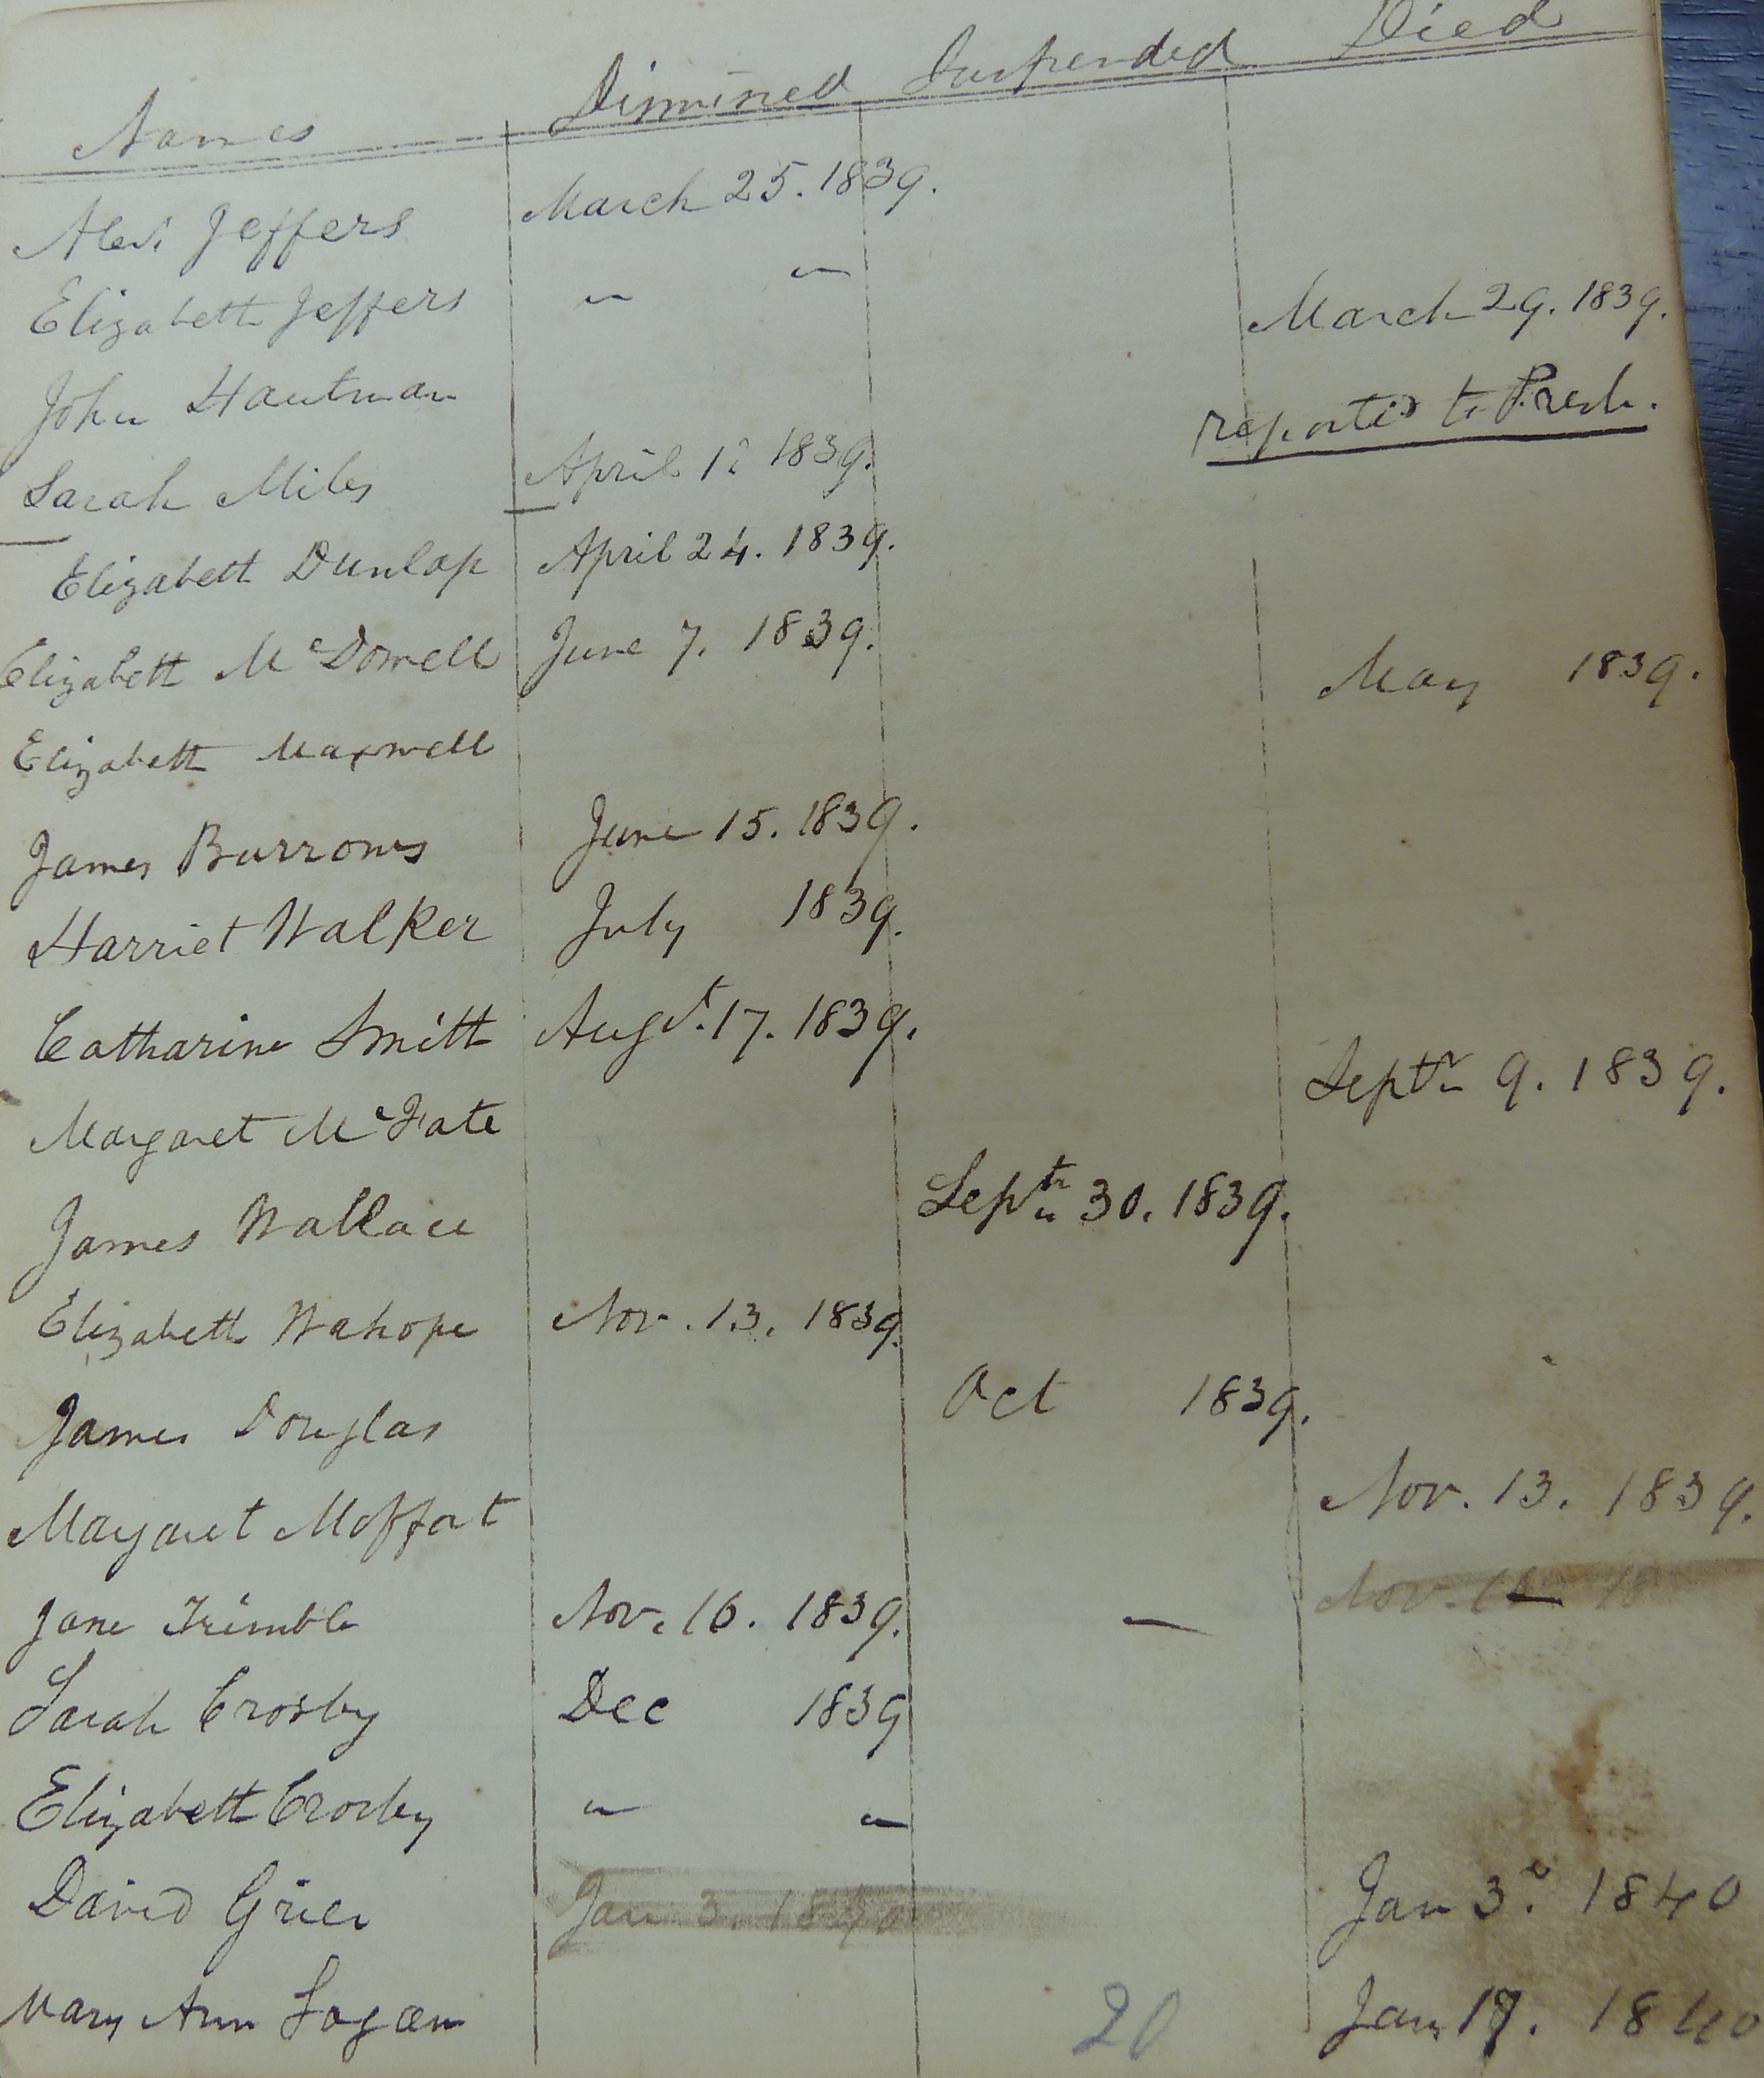 Names Dismissed Suspended Died
Alexr Jeffers March 25. 1839.
Elizabeth Jeffers " "
John Hautman March 29. 1839.
reported to Presb.
Sarah Miles April 1839.
Elizabeth Dunlap April 24. 1839.
Elizabeth McDowell June 7. 1839.
Elizabeth Maxwell May 1839.
James Burrows June 15. 1839.
Harriet Walker July 1839.
Catharine Smith Augst. 17. 1839.
Margaret McFate Septr 9. 1839.
James Wallace Septr 30. 1839.
Elizabeth Wahope Nov. 13. 1839.
James Douglas Oct 1839.
Margaret Moffat Nov. 13. 1839.
Jane Trimble Nov. 16. 1839. — Nov.
Sarah Crosby Dec 1839
Elizabeth Crosby " "
David Grier Jan 3. 1840 Jan 3d. 1840
Mary Ann Logan Jan 17. 1840
20